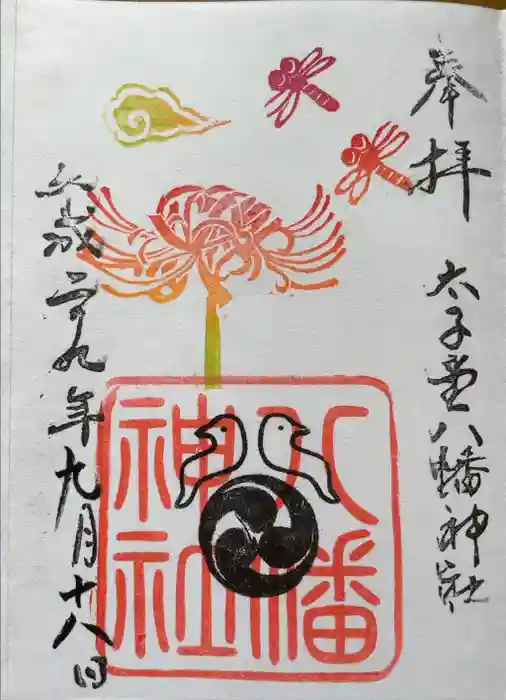 奉拝
太子堂八幡神社
八幡
神社
平成二十九年九月十八日